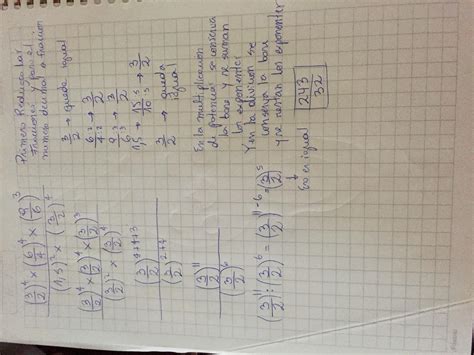 (3/2)^4 × (6/4)^4 × (9/6)^3
(1,5)^2 × (3/2)^4
(3/2)^4 × (3/2)^4 × (3/2)^3
(3/2)^2 × (3/2)^4
(3/2)^4+4+3
(3/2)^2+4
(3/2)^11
(3/2)^6
(3/2)^11 : (3/2)^6 = (3/2)^11-6 = (3/2)^5
↓
Eso es igual
Primero Reduzco las
fracciones y paso el
número decimal a fracción
3/2 → queda igual
6/4 → 3/2
9/6 → 3/2
1,5 → 15/10 → 3/2
3/2 → queda
igual
En la multiplicacion
de potencias se conserva
la base y se suman
los exponentes
Y en la division se
conserva la base
y se restan los exponentes
243/32